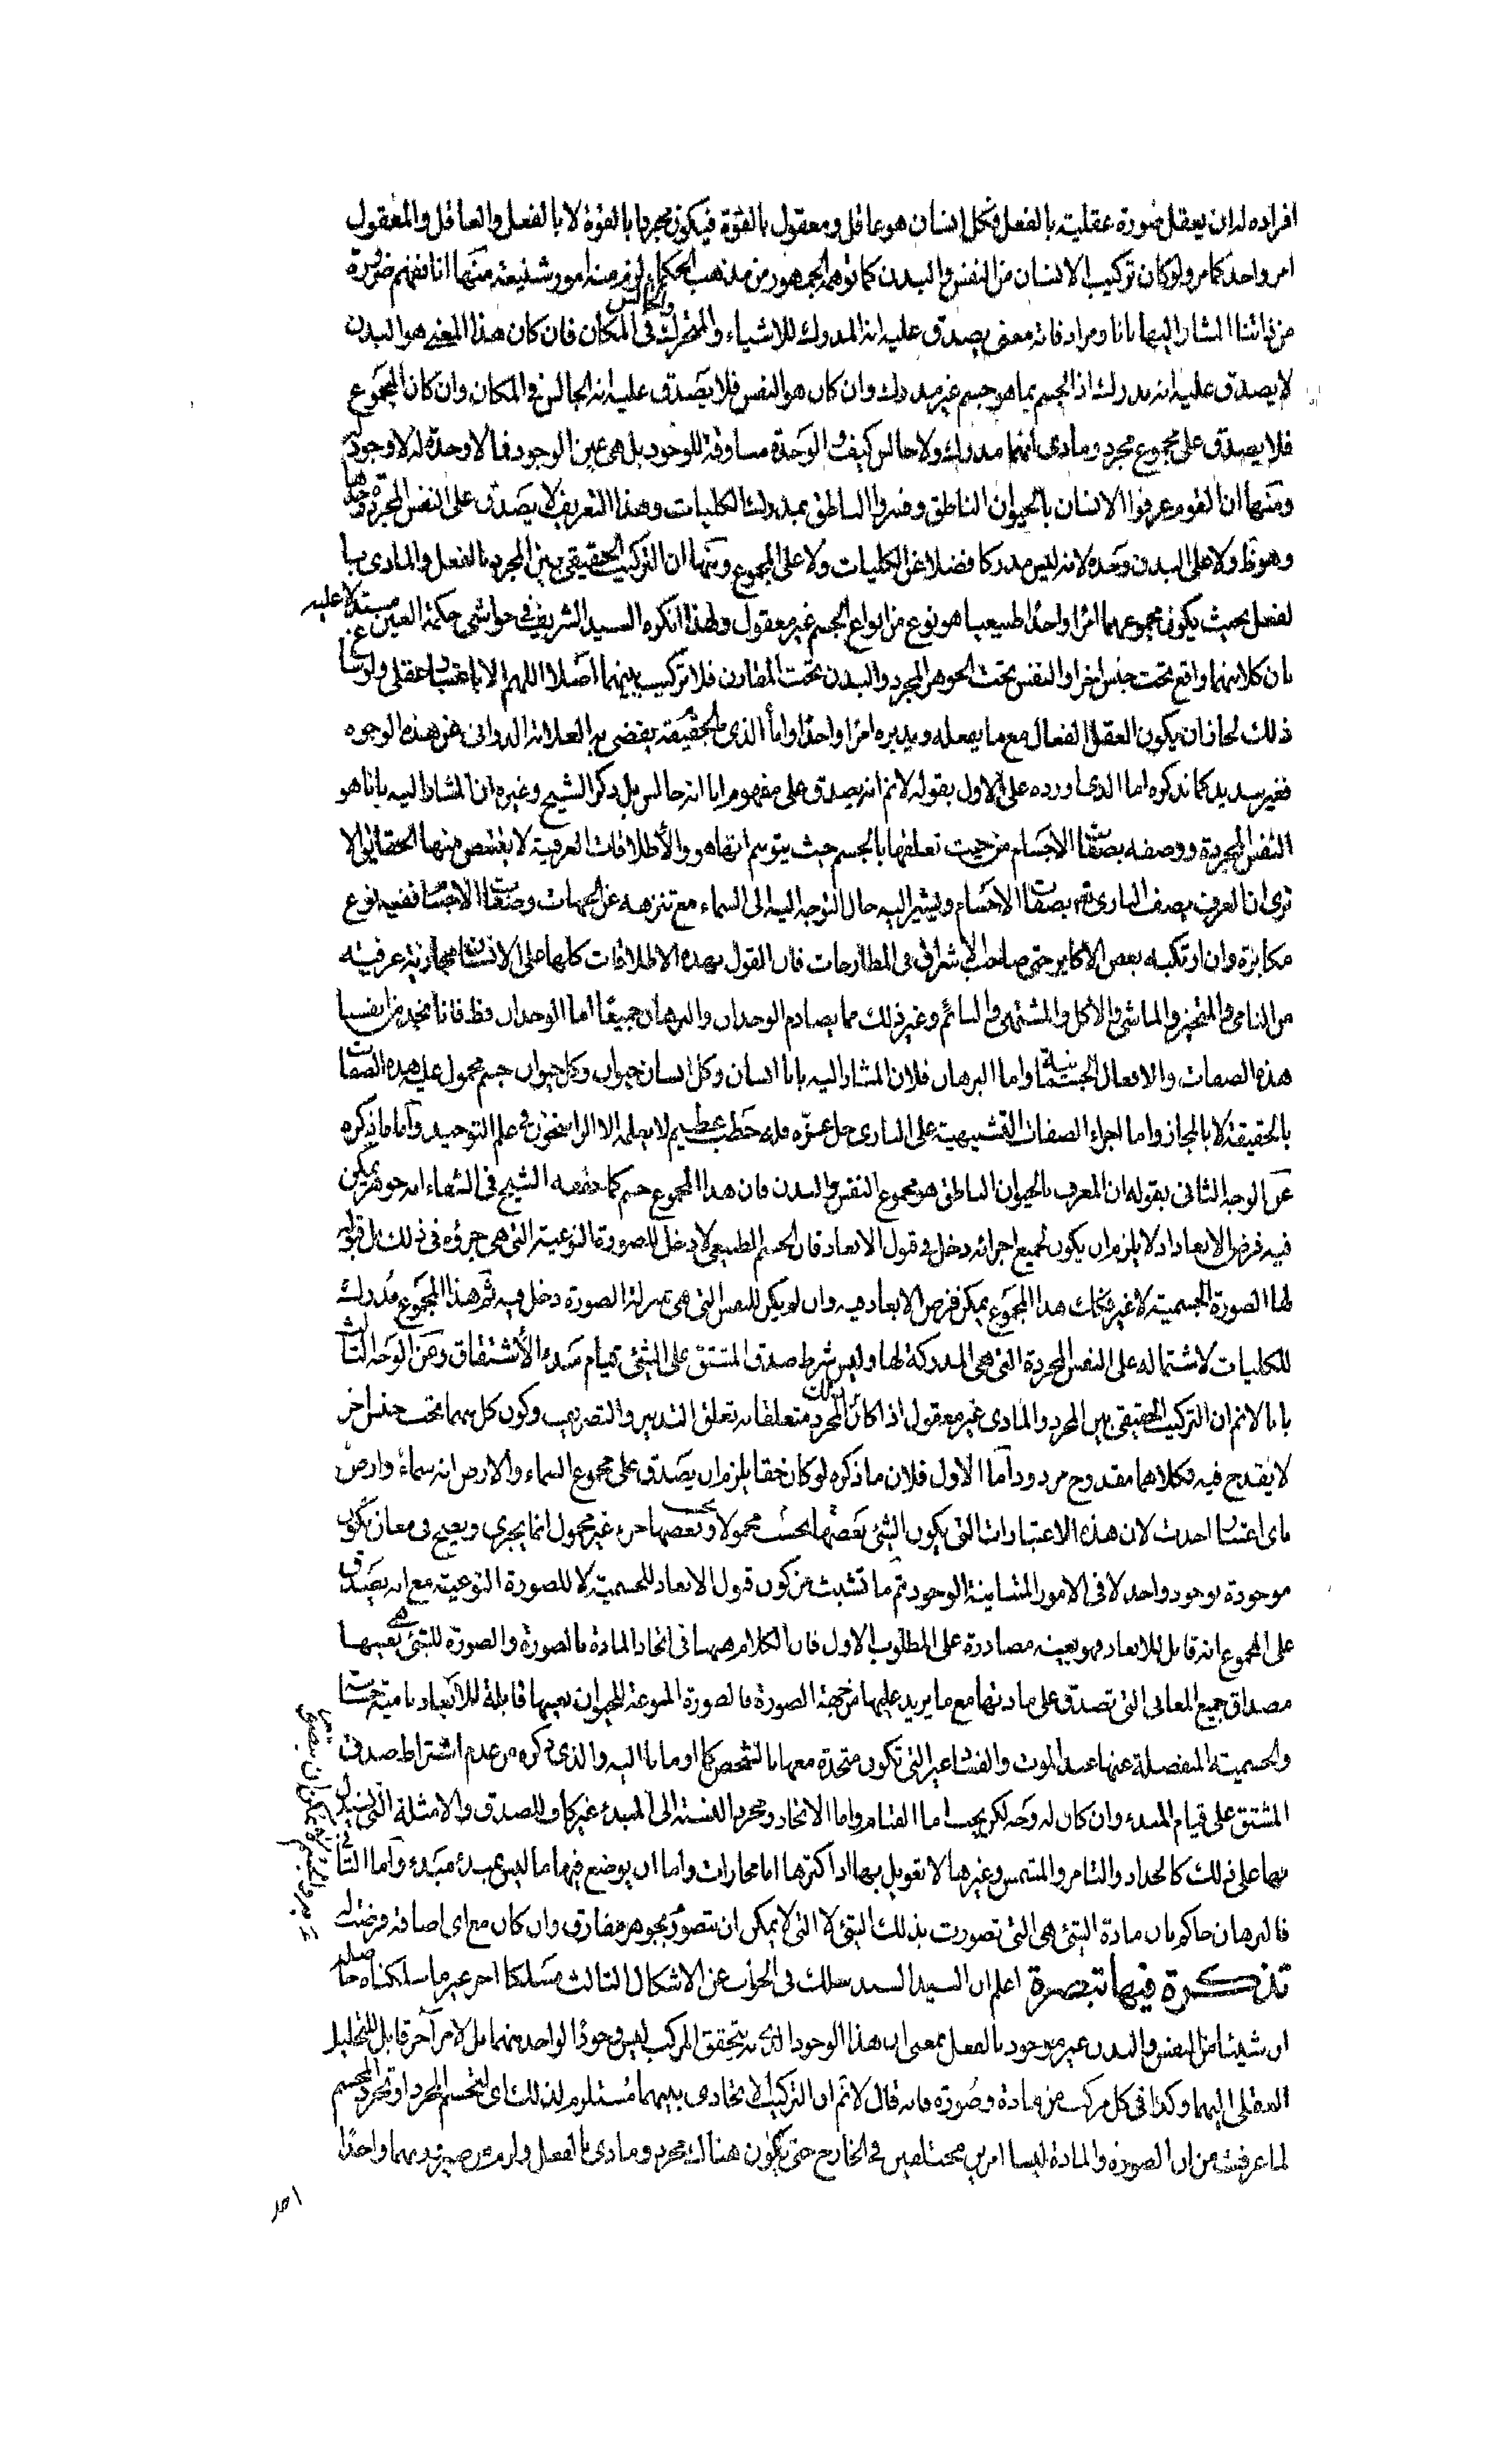 افراده له ان يعقل صورة عقلية بالفعل فكل انسان هو عاقل ومعقول بالقوة فيكون مجردا بالقوة لا بالفعل والعاقل والمعقول
امر واحد كما مر ولو كان تركيب الانسان من النفس والبدن كما توهمه الجمهور من مذهب الحكماء لزم منه امور شنيعة منها انا نفهم ضرورة
من ذاتنا المشار اليها بانا ومرادفاته معنى يصدق عليه انه المدرك للاشياء والمتحرك والجالس فى المكان فان كان هذا المعنى هو البدن
لا يصدق عليه انه مدرك اذ الجسم بما هو جسم غير مدرك وان كان هو النفس فلا يصدق عليه انه الجالس فى المكان وان كان المجموع
فلا يصدق على مجموع مجرد ومادى انهما مدرك ولا جالس كيف والوحدة مساوقة للوجود بل هى عين الوجود فما لا وحدة له لا وجود له
ومنها ان القوم عرفوا الانسان بالحيوان الناطق وفسروا الناطق بمدرك الكليات وهذا التعريف لا يصدق على النفس المجردة وحدها
وهو ظ ولا على البدن وحده لانه ليس مدركا فضلا عن الكليات ولا على المجموع ومنها ان التركيب الحقيقى بين المجرد بالفعل والمادى با
لفعل بحيث يكون مجموعهما امرا واحدا طبيعيا هو نوع من انواع الجسم غير معقول ولهذا انكره السيد الشريف فى حواشى حكمة العين مستدلا عليه
بان كلا منهما واقع تحت جنس اخر والنفس تحت الجوهر المجرد والبدن تحت المقارن فلا تركيب بينهما اصلا اللهم الا باعتبار عقلى ولو ساغ
ذلك لجاز ان يكون العقل الفعال مع ما يفعله ويدبره امرا واحدا واما الذى تفصى به العلامة الدوانى عن هذه الوجوه
فغير سديد كما نذكره اما الذى اورده على الاول بقوله لا نم انه يصدق على مفهوم انا انه جالس بل ذكر الشيخ وغيره ان المشار اليه بانا هو
النفس المجردة ووصفه بصفات الاجسام من حيث تعلقها بالجسم حيث يتوسم انها هو والاطلاقات العرفية لا يقتنص منها الحقايق الا
ترى ان العرف يصف البارى تع بصفات الاجسام ويشير اليه حال التوجه اليه الى السماء مع تنزهه عن الجهات وصفات الاجسام ففيه نوع
مكابرة وان ارتكبه بعض الاكابر حتى صاحب الاشراق فى المطارحات فان القول بهذه الاطلاقات كلها على الانسان مجازية عرفية
من النامى والمتحيز والماشى والاكل والمشتهى والنائم وغير ذلك مما يصادم الوجدان والبرهان جميعا اما الوجدان فظ فانا نجد من نفسنا
هذه الصفات والافعال الجسمانية واما البرهان فلان المشار اليه بانا انسان وكل انسان حيوان وكل حيوان جسم محمول عليه هذه الصفات
بالحقيقة لا بالمجاز واما اجراء الصفات التشبيهية على البارى جل عزه فله خطب عظيم لا يعلمه الا الراسخون فى علم التوحيد واما ما ذكره
عن الوجه الثانى بقوله ان المعرف بالحيوان الناطق هو مجموع النفس والبدن فان هذا المجموع جسم كما حققه الشيخ فى الشفاء انه جوهر يمكن
فيه فرض الابعاد اذ لا يلزم ان يكون لجميع اجزائه دخل فى قبول الابعاد فان الجسم الطبيعى لا دخل للصورة النوعية التى هى جزؤه فى ذلك بل قبوله
لها الصورة الجسمية لا غير فكذلك هذا المجموع يمكن فرض الابعاد فيه وان لم يكن للنفس التى هى بمنزلة الصورة دخل فيه ثم هذا المجموع مدرك
للكليات لاشتماله على النفس المجردة التى هى المدركة لها وليس شرط صدق المشتق على الشئ قيام مبدء الاشتقاق وعن الوجه الثالث
بانا لا نم ان التركيب الحقيقى بين المجرد والمادى غير معقول اذا كان المجرد متعلقا به تعلق التدبير والتصريف وكون كل منهما تحت جنس اخر
لا يقدح فيه فكلاهما مقدوح مردود اما الاول فلان ما ذكره لو كان حقا يلزم ان يصدق على مجموع السماء والارض انه سماء وارض
باى اعتبار اخذت لان هذه الاعتبارات التى يكون الشئ بعضها بحسبه محمولا وبعضها بحسبه جزء غير محمول انما يجرى ويصح فى معان يكون
موجودة بوجود واحد لا فى الامور المتباينة الوجود ثم ما تشبث من كون قبول الابعاد للجسمية لا للصورة النوعية مع انه يصدق
على المجموع انه قابل للابعاد فهو بعينه مصادرة على المطلوب الاول فان الكلام ههنا فى اتحاد المادة بالصورة والصورة للشئ هى بعينها
مصداق جميع المعانى التى تصدق على مادتها مع ما يزيد عليها من جهة الصورة فالصورة النوعية للحيوان بعينها قابلة للابعاد نامية حساسة
والجسمية المنفصلة عنها عند الموت والفساد غير التى تكون متحدة معها بالشخص كما اومانا اليه والذى ذكره من عدم اشتراط صدق
المشتق على قيام المبدء وان كان له وجه لكن يجب اما القيام واما الاتحاد ومجرد النسبة الى المبدء غير كاف للصدق والامثلة التى يتبدل
بها على ذلك كالحداد والتامر والمشمس وغيرها لا تعويل بها اذ اكثرها اما مجازات واما ان يوضع فيها ما ليس بمبدء مبدء واما الثانى
فالبرهان حاكم بان مادة الشئ هى التى تصورت بذلك الشئ لا التى لا يمكن ان يتصور بجوهر مفارق وان كان مع اى اضافة فرضت له
تذكرة فيها تبصرة اعلم ان السيد السند سلك فى الجواب عن الاشكال الثالث مسلكا اخر غير ما سلكناه حاصله
ان شيئا من النفس والبدن غير موجود بالفعل بمعنى ان هذا الوجود الذى به يتحقق المركب ليس وجودا لواحد منهما بل لامر اخر قابل للتحليل
العقلى اليهما وكذا فى كل مركب من مادة وصورة فانه قال لا نم ان التركيب الاتحادى بينهما مستلزم لذلك اى لتجسم المجرد او تجرد المجسم
لما عرفت من ان الصورة والمادة ليسا امرين مختلفين فى الخارج حتى يكون هناك مجرد ومادى بالفعل ولزم من صيرورتهما واحدا